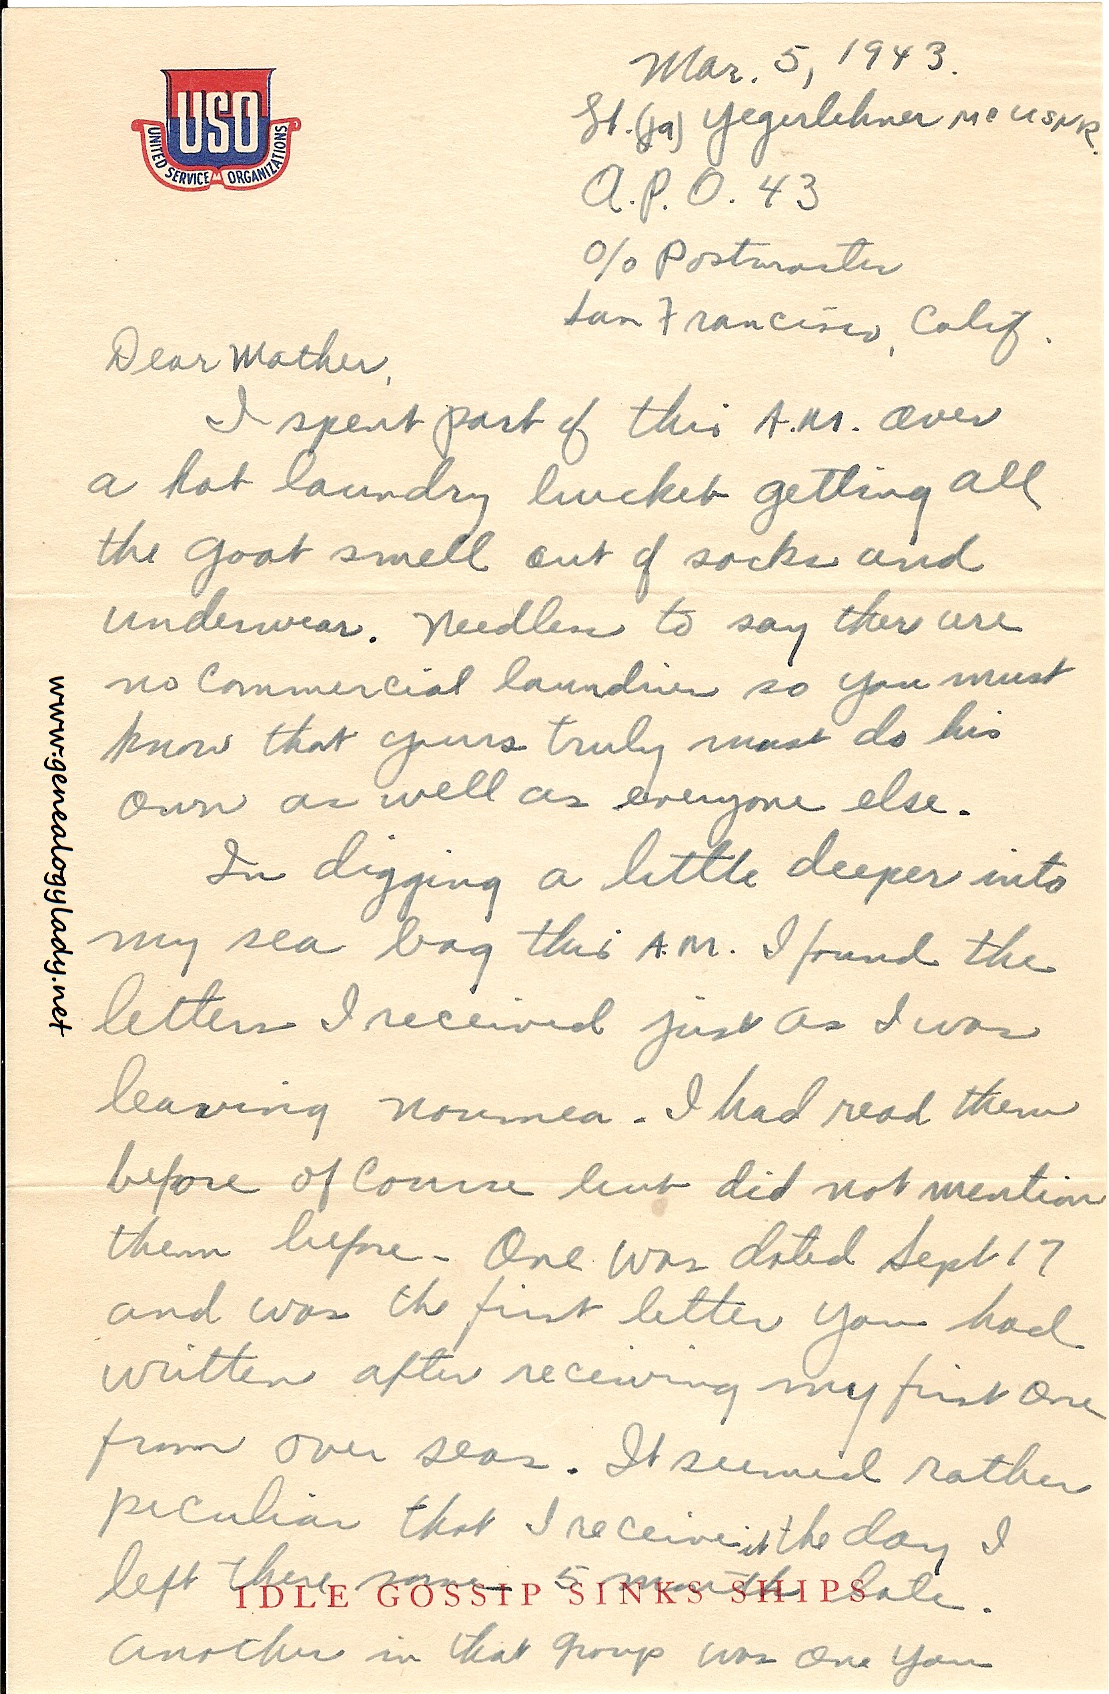 USO
UNITED SERVICE ORGANIZATIONS
Mar. 5, 1943.
Lt. (jg) Yegerlehner MC USNR.
A.P.O. 43
c/o Postmaster
San Francisco, Calif.
Dear Mother,
I spent part of this A.M. over
a hot laundry bucket getting all
the goat smell out of socks and
underwear. Needless to say there are
no commercial laundries so you must
know that yours truly must do his
own as well as everyone else.
In digging a little deeper into
my sea bag this A.M. I found the
letters I received just as I was
leaving Noumea. I had read them
before of course but did not mention
them before. One was dated Sept 17
and was the first letter you had
written after receiving my first one
from over seas. It seemed rather
peculiar that I receive it the day I
left there some 5 months late.
IDLE GOSSIP SINKS SHIPS
Another in that group was one you
www.genealogylady.net